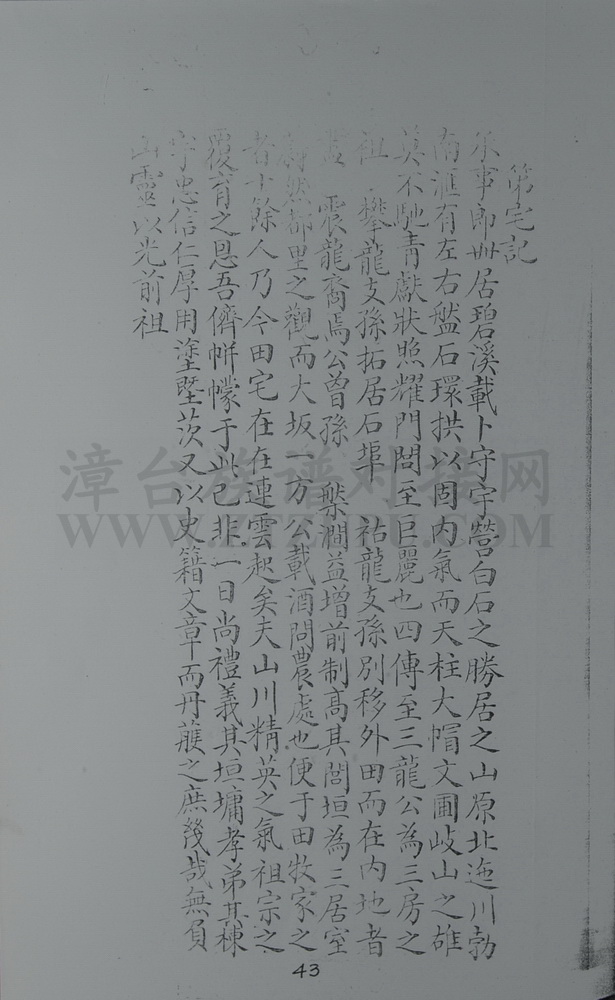 第宅記
樂事郎卅居碧溪載卜守宇營白石之勝居之山原北迤川勃
南滙有左右盤石環拱以固内氣而天柱大帽文圃岐山之雄
莫不馳青獻狀照耀門閭至巨麗也四傳至三龍公為三房之
祖 攀龍支孫拓居石埠 祜龍支孫別移外田而在内地者
震龍裔焉公曾孫 槃澗益增前制高其閭垣為三居室
蔚然都里之觀而大坂一方公載酒問農處也便于田牧家之
者十餘人乃今田宅在在連雲起矣夫山川精英之氣祖宗之
覆育之恩吾儕帡幪于此已非一日尚禮義其垣墉孝弟其棟
宇忠信仁厚用塗塈茨又以史籍文章而丹雘之庶幾哉無負
山靈以光前祖
漳台族谱对接网
43